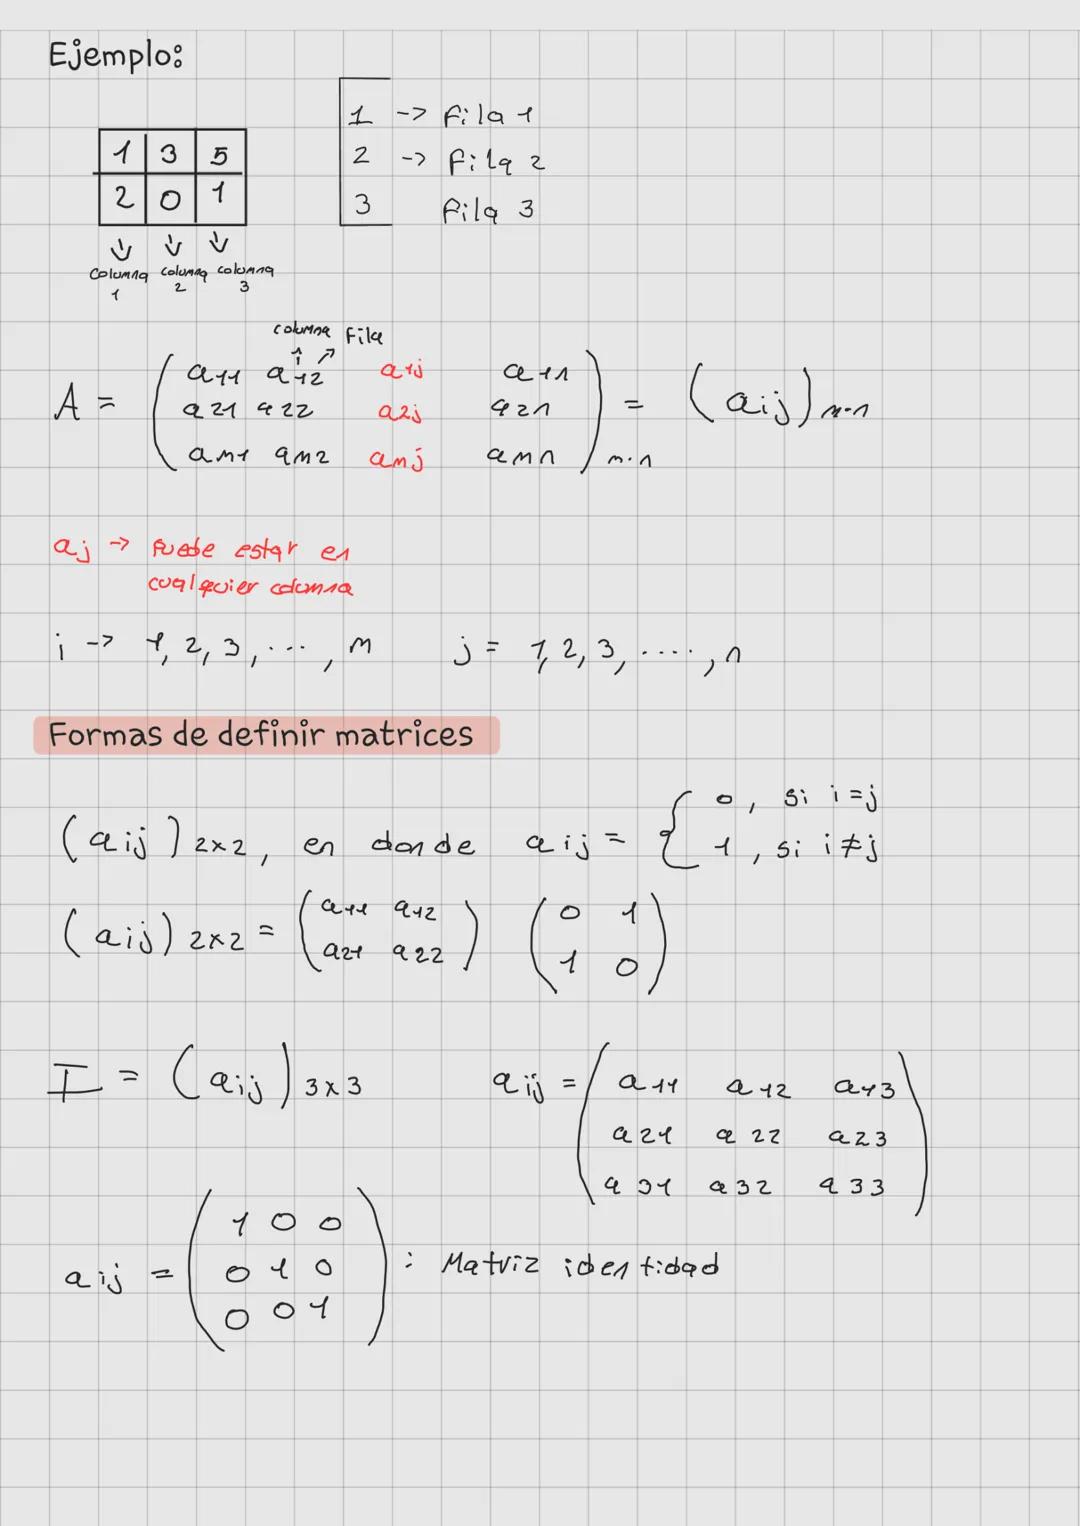 Ejemplo:
1 3 5
2 0 1
columna 1 columna 2 columna 3
1 -> fila 1
2 -> fila 2
3 fila 3
columna fila
A = ( a11 a12 a1j a1n
a21 a22 a2j a2n
am1 am2 amj amn ) m·n = (aij) m·n
aj -> Puede estar en
cualquier columna
i -> 1, 2, 3, ..., m j = 1, 2, 3, ...., n
Formas de definir matrices
(aij) 2x2, en donde aij = { 0, si i=j
1, si i≠j
(aij) 2x2 = ( a11 a12
a21 a22 ) ( 0 1
1 0 )
I = (aij) 3x3 aij = ( a11 a12 a13
a21 a22 a23
a31 a32 a33 )
aij = ( 1 0 0
0 1 0
0 0 1 ) : Matriz identidad